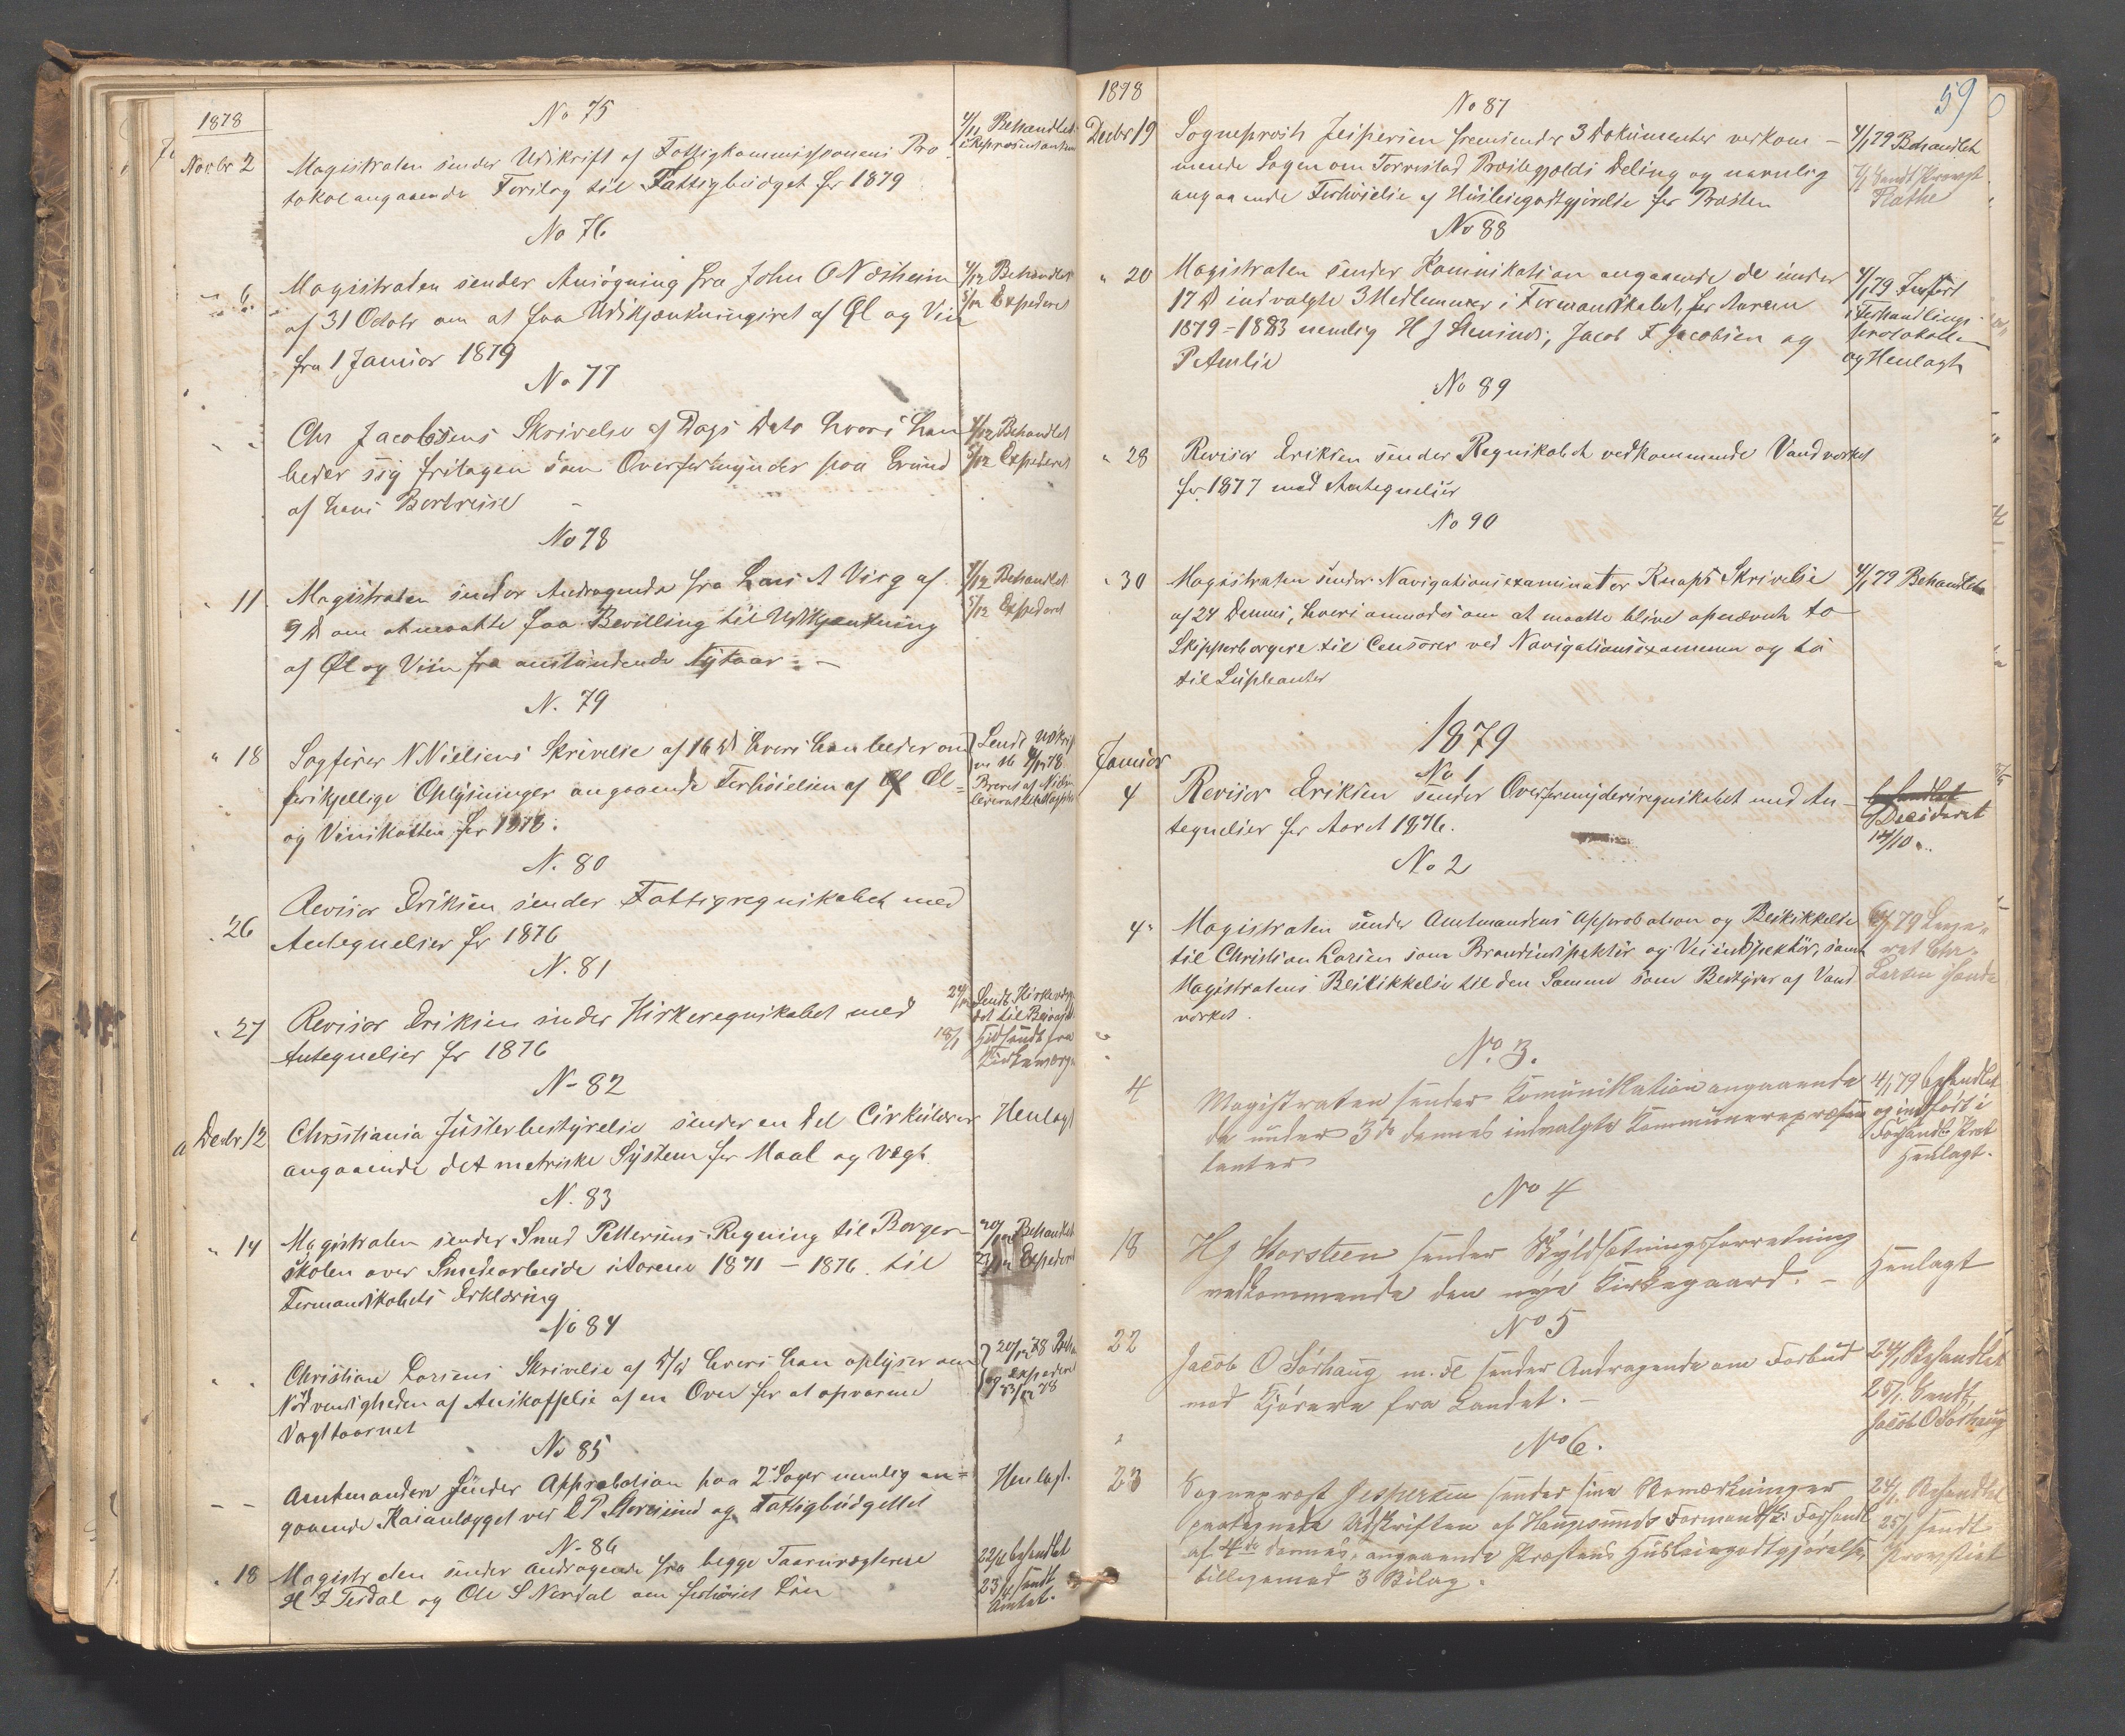 1878
No 75
Novbr 2
Magistraten sender Udskrift af Fattigkommissionens Pro-
tokol angaaende Forslag til Fattigbudget for 1879
4/12 Behandlet
i Repræsentanterne
No 76
" 6
Magistraten sender Ansøgning fra John O Næsheim
af 31 Octobr om at faa Udskjænkningsret af Øl og Vin
fra 1 Januar 1879
4/12 Behandlet
5/12 Expederet
No 77
" "
Chr Jacobsens Skrivelse af Dags Dato hvori han
beder sig fritagen som Overformynder paa Grund
af hans Bortreise
4/12 Behandlet
5/12 Expederet
No 78
" 11
Magistraten sender Andragende fra Lars A Virg af
9 d om at maatte faa Bevilling til Udskjænkning
af Øl og Viin fra anstundende Nytaar. -
4/12 Behandlet
5/12 Expederet
N. 79
" 18
Sagfører N Nielsens Skrivelse af 16 d hvori han beder om
forskjellige Oplysninger angaaende Forhøielsen af Øl
og Vinskatten for 1878.
Sendt Udskrift
N. 80
" 26
Revisor Eriksen sender Fattigregnskabet med
Antegnelser for 1876
N. 81
" 27
Revisor Eriksen sender Kirkeregnskabet med
Antegnelser for 1876
Sendt Kirkeværge
18/1 Tilsendt fra
Kirkeværgen
N- 82
Decbr 12
Christiania Justerbestyrelse sender en Del Cirkulærer
angaaende det metriske System for Maal og Vægt
Henlagt
N. 83
" 14
Magistraten sender Smed Pettersens Regning til Borger-
skolen over Smedearbeide i Aarene 1871 - 1876 til
Formandskabets Erklæring
20/12 Behandlet
23/12 Expederet
No 84
" "
Christian Larsens Skrivelse af hvori han oplyser om
Nødvendigheden af Anskaffelse af en Ovn for at opvarme
Vagttaarnet
20/12 78 Beh
og Expederet
23/12 78
No 85
- -
Amtmanden sender Approbation paa 2 Sager nemlig an-
gaaende Kaianlægget ved og Fattigbudgettet
Henlagt.
N- 86
" 18
Magistraten sender Andragende fra begge Taarnvægterne
H I Tesdal og Ole S Nordal om forhøiet Løn
behandlet
sendt
Amtet.
59
1878
No 87
Decbr 19
Sogneprest Jespersen fremsender 3 Dokumenter vedkom-
mende Sagen om Torvestad Præstegjelds Deling og navnlig
angaaende Forhøielse af Husleiegodtgjørelse for Presten
4/1 79 Behandlet
Sendt Provst
Rathe
No 88
" 20
Magistraten sender Komunikation angaaende de under
17 d indvalgte 3 Medlemmer i Formandskabet, for Aarene
1879-1883 nemlig H J Stensnds, Jacob F Jacobsen og
P Amlie
4/1 79 Indført
i Forhandlings-
protokollen
og Henlagt
No 89
" 28
Revisor Eriksen sender Regnskabet vedkommende Vandverket
for 1877 med Antegnelser
No 90
" 30
Magistraten sender Navigationsexaminator Knaps Skrivelse
af 24 Dennes, hvori anmodes om at maatte blive opnævnt to
Skipperborgere til Censorer ved Navigationsexamenen og to
til Suppleanter
4/1 79 Behandlet
1879
Januar
No 1
4
Revisor Eriksen sender Overformynderiregnskabet med An-
tegnelser for Aaret 1876.
behandlet
Decideret
14/10
No 2
4"
Magistraten sender Amtmandens Approbation og Beskikkelse
til Christian Larsen som Brandinspektør og Veiinspektør, samt
Magistratens Beskikkelse til den Samme som Bestyrer af Vand
værket.
Larsen
No 3.
4
Magistraten sender Komunikation angaaende
de under 3de dennes indvalgte Kommunerepræsen
tanter
4/1 79 behandlet
og indført i
Forhandl. Prot
Henlagt.
No 4
18
Hj Storsteen sender Skyldsætningsforretning
vedkommende den nye Kirkegaard. -
Henlagt
No 5
22
Jacob O Sørhaug m. Fl sender Andragende om Forbud
mod Kjørere fra Landet. -
24/1 Behandlet
25/1 Sendt
Jacob O Sørhaug
No 6.
23
Sogneprest Jespersen sender sine Bemærkninger
paategnede Udskriften af Haugesunds Formandsk: Forhandl
af 4de dennes, angaaende Præstens Husleiegodtgjørelse,
tilligemed 3 Bilag.
24/1 Behandlet
25/1 sendt
Provstiet